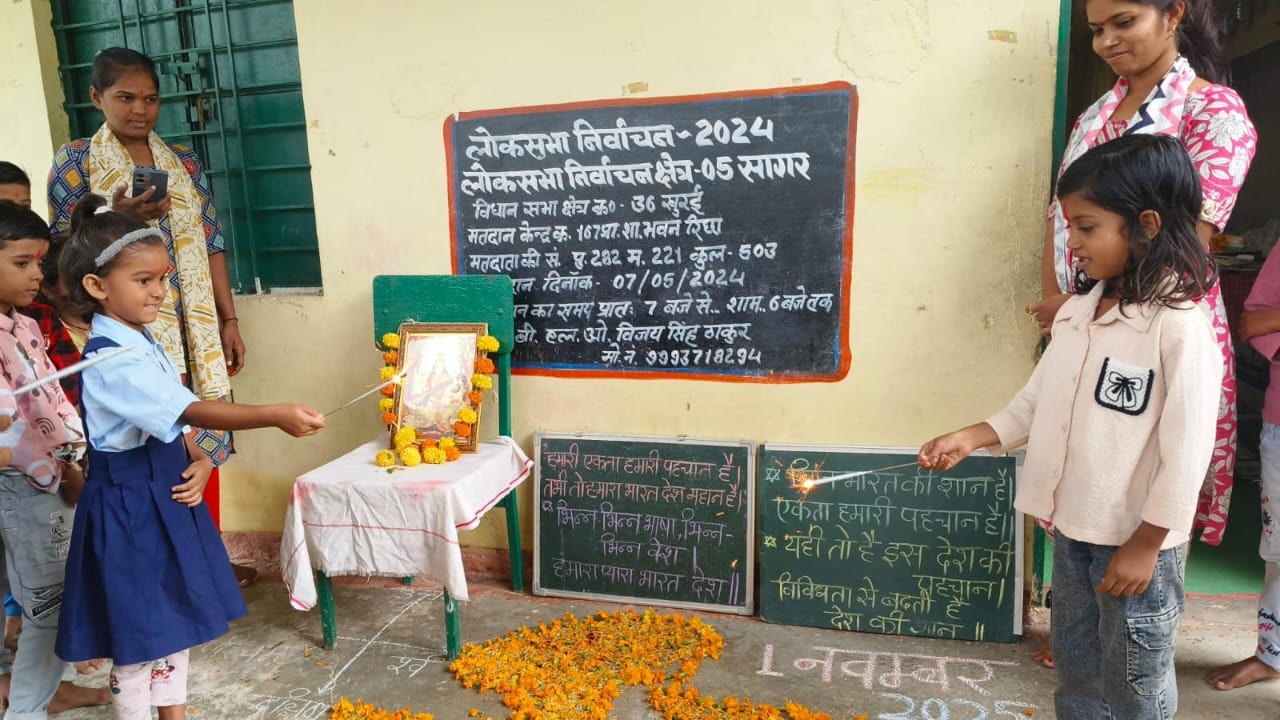 लोकसभा निर्वाचन-2024
लोकसभा निर्वाचन क्षेत्र-05 सागर
विधान सभा क्षेत्र क्र०- 36 सुरई
मतदान केन्द्र क्र. 167 प्रा.शा.भवन रिछा
मतदाता की सं. पु.282 म.221 कुल-503
दिनाँक- 07/05/2024
का समय प्रातः 7 बजे से.. शाम..6 बजे तक
बी. एल. ओ. विजय सिंह ठाकुर
मो.नं. 9993718294
हमारी एकता हमारी पहचान है।
तभी तो हमारा भारत देश महान है।
भिन्न-भिन्न भाषा, भिन्न-
भिन्न वेश।
हमारा प्यारा भारत देश॥
भारत की शान है।
एकता हमारी पहचान है॥
यही तो है इस देश की
पहचान।
विविधता से बढ़ती है
देश की शान ॥
पूर्व
दक्षिण
1 नवम्बर
2025